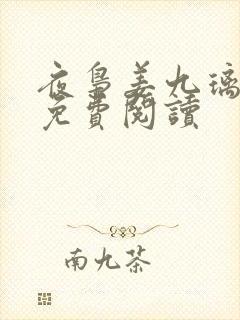 夜鳥姜九璃
免費閱讀
南九茶